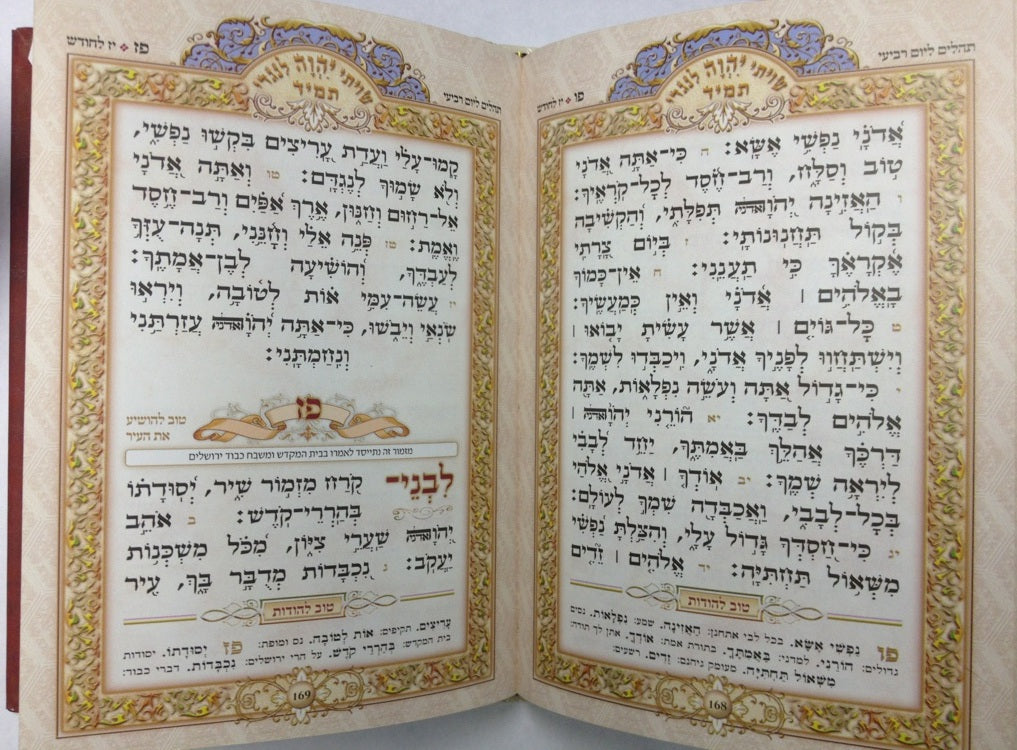 תהלים ליום רביעי
פו ❖ יז לחודש
שויתי יְהֹוָה לנגדי
תמיד
אֲ֝דֹנָ֗י נַפְשִׁ֥י אֶשָּֽׂא׃ ה כִּֽי־אַתָּ֣ה אֲ֭דֹנָי
ט֣וֹב וְסַלָּ֑ח, וְרַב־חֶ֝֗סֶד לְכָל־קֹרְאֶֽיךָ׃
ו הַאֲזִ֣ינָה יְ֭הֹוָואדניה תְּפִלָּתִ֑י, וְ֝הַקְשִׁ֗יבָה
בְּק֣וֹל תַּחֲנוּנוֹתָֽי׃ ז בְּי֣וֹם צָ֭רָתִ֥י
אֶקְרָאֶ֗ךָּ כִּ֣י תַעֲנֵֽנִי׃ ח אֵין־כָּמ֖וֹךָ
בָאֱלֹהִ֥ים ׀ אֲדֹנָ֗י וְאֵ֣ין כְּֽמַעֲשֶֽׂיךָ׃
ט כָּל־גּוֹיִ֤ם ׀ אֲשֶׁ֥ר עָשִׂ֗יתָ יָב֤וֹאוּ ׀
וְיִשְׁתַּחֲו֣וּ לְפָנֶ֣יךָ אֲדֹנָ֑י, וִֽיכַבְּד֣וּ לִשְׁמֶֽךָ׃
י כִּֽי־גָד֣וֹל אַ֭תָּה וְעֹשֵׂ֣ה נִפְלָא֑וֹת, אַתָּ֖ה
אֱלֹהִ֣ים לְבַדֶּֽךָ׃ יא ה֘וֹרֵ֤נִי יְהֹוָואדניה ׀
דַּרְכֶּ֗ךָ אֲהַלֵּ֥ךְ בַּאֲמִתֶּ֑ךָ, יַחֵ֥ד לְ֝בָבִ֗י
לְיִרְאָ֥ה שְׁמֶֽךָ׃ יב אוֹדְךָ֤ ׀ אֲדֹנָ֣י אֱ֭לֹהַי
בְּכָל־לְבָבִ֑י, וַאֲכַבְּדָ֖ה שִׁמְךָ֣ לְעוֹלָֽם׃
יג כִּֽי־חַ֭סְדְּךָ גָּד֣וֹל עָלָ֑י, וְהִצַּ֥לְתָּ נַ֝פְשִׁ֗י
מִשְּׁא֥וֹל תַּחְתִּיָּֽה׃ יד אֱלֹהִ֤ים ׀ זֵ֘דִ֤ים
טוב להודות
פו נַפְשִׁי אֶשָּׂא. בכל לבי אתחנן: הַאֲזִינָה. שמע: נִפְלָאוֹת. נסים
גדולים: הוֹרֵנִי. למדני: בַּאֲמִתֶּךָ. בתורת אמת: אוֹדְךָ. אתן לך תודה:
מִשְּׁאוֹל תַּחְתִּיָּה. מעומק גיהנם: זֵדִים. רשעים:
168
תהלים ליום רביעי
פז ❖ יז לחודש
שויתי יְהֹוָה לנגדי
תמיד
קָֽמוּ־עָלַ֗י וַעֲדַ֣ת עָ֭רִיצִים בִּקְשׁ֣וּ נַפְשִׁ֑י,
וְלֹ֖א שָׂמ֣וּךָ לְנֶגְדָּֽם׃ טו וְאַתָּ֣ה אֲ֭דֹנָי
אֵל־רַח֣וּם וְחַנּ֑וּן, אֶ֥רֶךְ אַ֝פַּ֗יִם וְרַב־חֶ֥סֶד
וֶאֱמֶֽת׃ טז פְּנֵ֥ה אֵלַ֗י וְחָ֫נֵּ֥נִי, תְּנָֽה־עֻזְּךָ֥
לְעַבְדֶּ֑ךָ, וְ֝הוֹשִׁ֗יעָה לְבֶן־אֲמָתֶֽךָ׃
יז עֲשֵֽׂה־עִמִּ֥י א֗וֹת לְט֫וֹבָ֥ה, וְיִרְא֣וּ
שֹׂנְאַ֣י וְיֵבֹ֑שׁוּ, כִּֽי־אַתָּ֥ה יְ֝הֹוָ֗ואדניה עֲזַרְתַּ֥נִי
וְנִחַמְתָּֽנִי׃
פז
טוב להושיע
את העיר
מזמור זה נתייסד לאמרו בבית המקדש ומשבח כבוד ירושלים
לִבְנֵי־ קֹ֭רַח מִזְמ֣וֹר שִׁ֑יר, יְ֝סוּדָת֗וֹ
בְּהַרְרֵי־קֹֽדֶשׁ׃ ב אֹהֵ֣ב
יְ֭הֹוָואדניה שַׁעֲרֵ֣י צִיּ֑וֹן, מִ֝כֹּ֗ל מִשְׁכְּנ֥וֹת
יַעֲקֹֽב׃ ג נִ֭כְבָּדוֹת מְדֻבָּ֣ר בָּ֑ךְ, עִ֖יר
טוב להודות
עָרִיצִים. תקיפים: אוֹת לְטוֹבָה. נס ומופת: פז יְסוּדָתוֹ. יסודות
בית המקדש: בְּהַרְרֵי קֹדֶשׁ. על הרי ירושלים: נִכְבָּדוֹת. דברי כבוד:
169